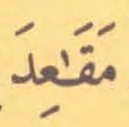 مَقَٰعِدَ